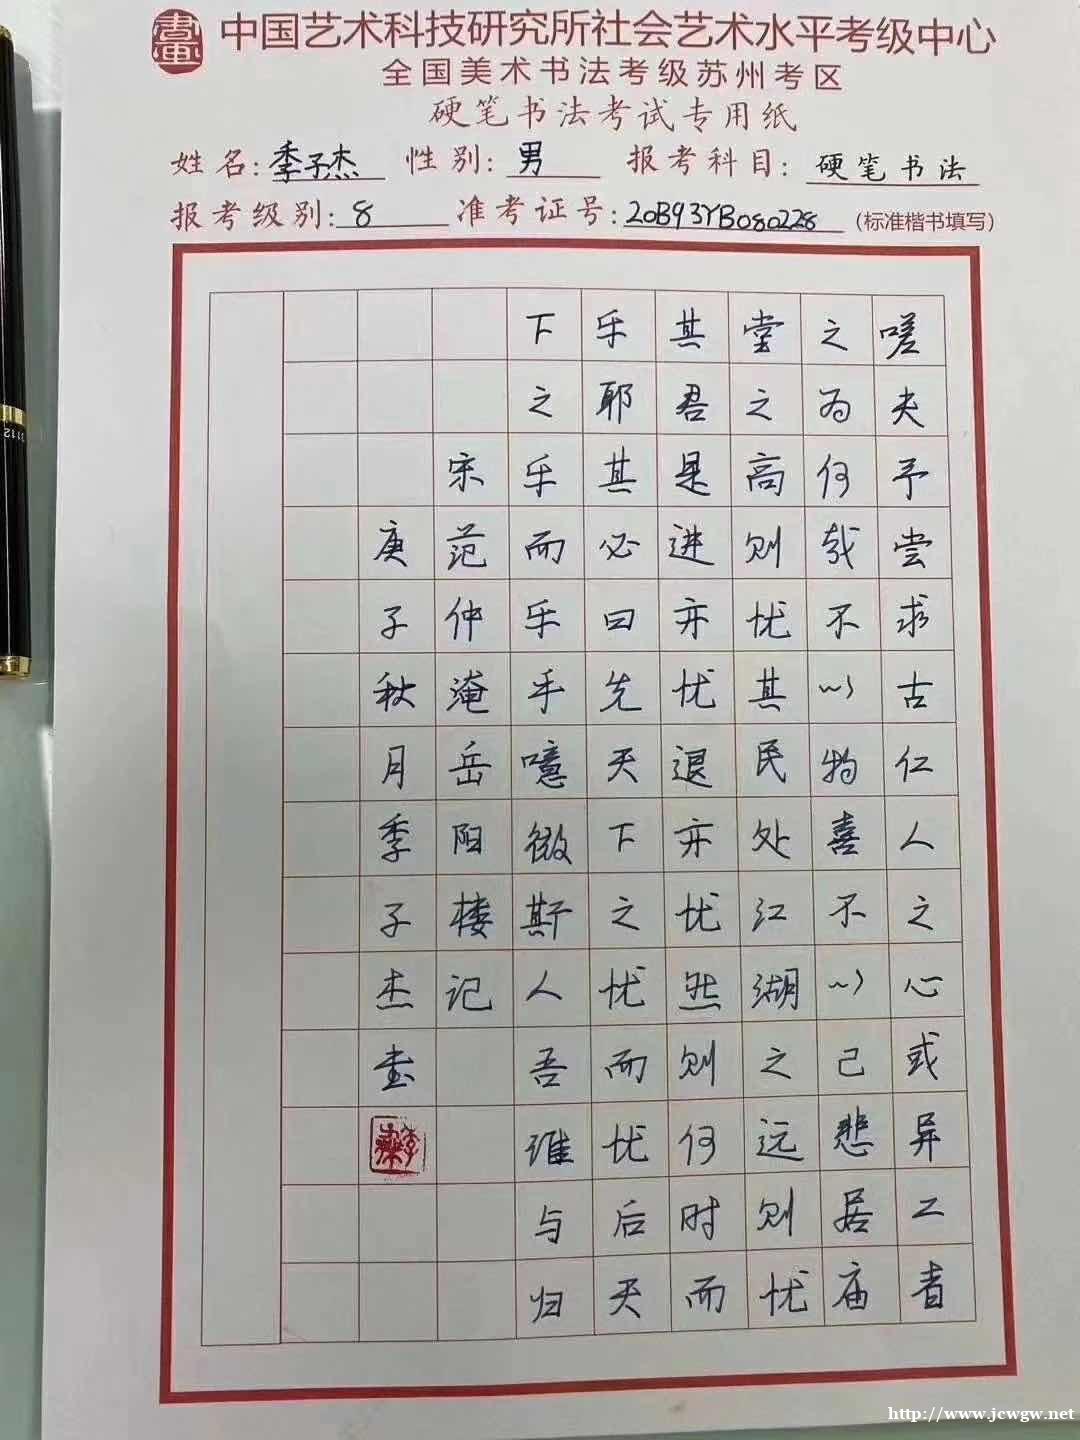 書画
中国艺术科技研究所社会艺术水平考级中心
全国美术书法考级苏州考区
硬笔书法考试专用纸
姓名:季子杰 性别:男 报考科目:硬笔书法
报考级别:8 准考证号:20B93YB080228 (标准楷书填写)
嗟夫予尝求古仁人之心或异二者
之为何哉不以物喜不以己悲居庙
堂之高则忧其民处江湖之远则忧
其君是进亦忧退亦忧然则何时而
乐耶其必曰先天下之忧而忧后天
下之乐而乐乎噫微斯人吾谁与归
宋范仲淹岳阳楼记
庚子秋月季子杰书
http://www.jcwgw.net